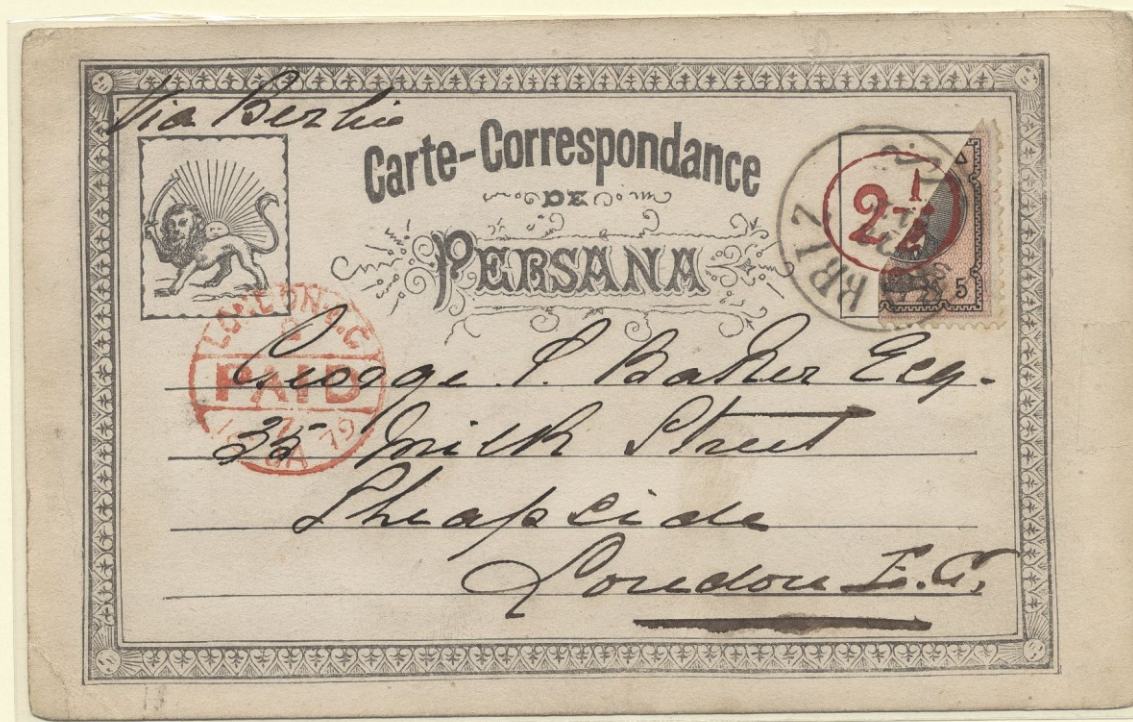 Via Berlin
Carte-Correspondance
DE
PERSANA
2 1/2
5
BRIZ
LONDON E.C
PAID
79
George S. Baker Esq.
35 Milk Street
Cheapside
London E.C.